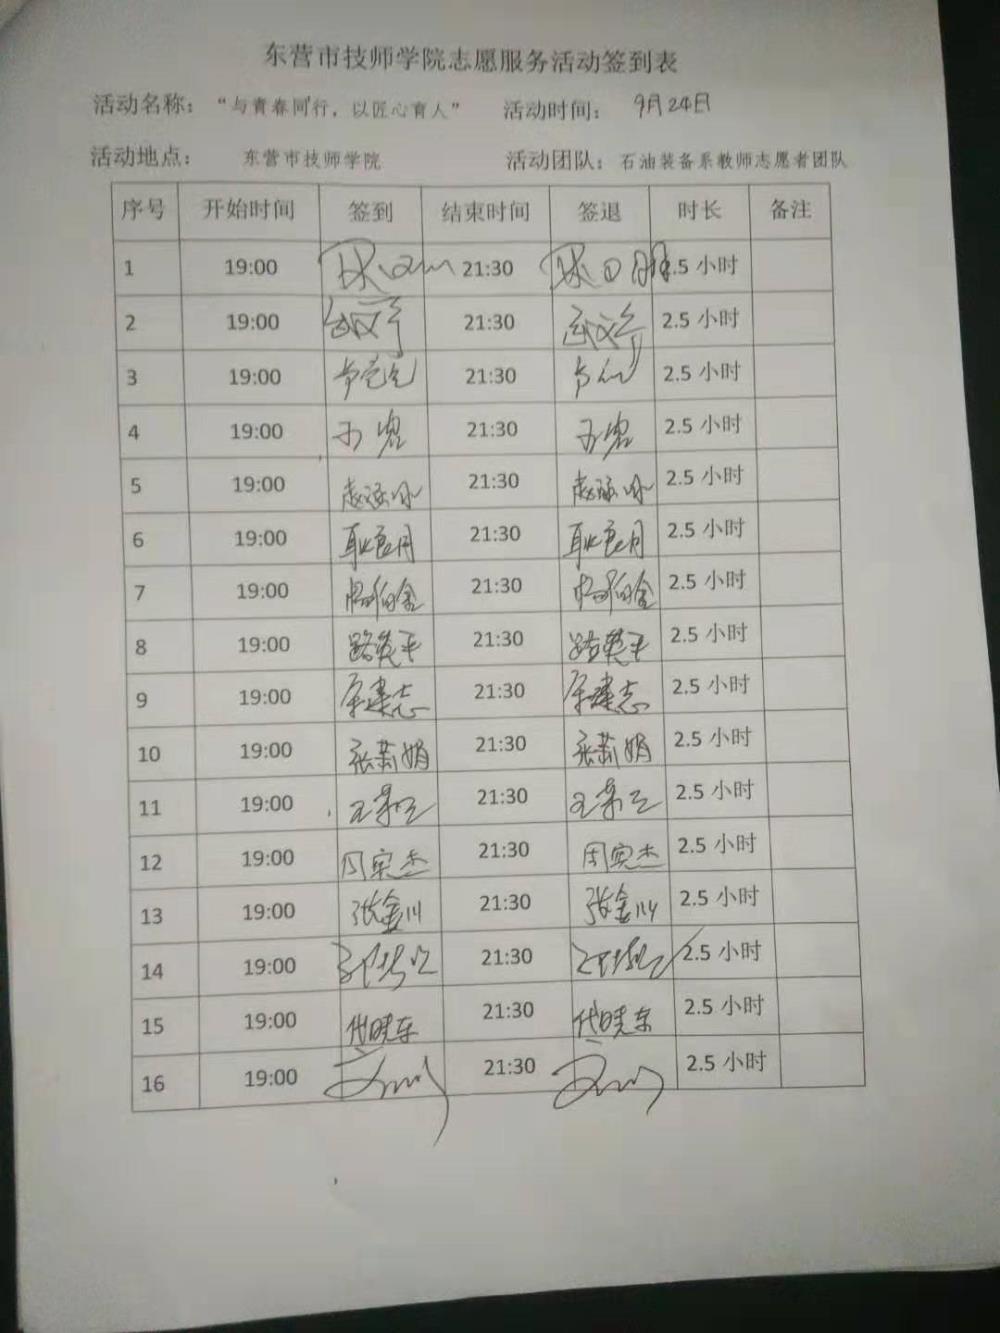 东营市技师学院志愿服务活动签到表
活动名称： “与青春同行，以匠心育人” 活动时间： 9月24日
活动地点： 东营市技师学院 活动团队：石油装备系教师志愿者团队
序号 开始时间 签到 结束时间 签退 时长 备注
1 19:00 21:30 .5 小时
2 19:00 21:30 2.5 小时
3 19:00 21:30 2.5 小时
4 19:00 21:30 2.5 小时
5 19:00 21:30 2.5 小时
6 19:00 21:30 2.5 小时
7 19:00 21:30 2.5 小时
8 19:00 路英平 21:30 路英平 2.5 小时
9 19:00 21:30 2.5 小时
10 19:00 张莉娟 21:30 张莉娟 2.5 小时
11 19:00 21:30 2.5 小时
12 19:00 周宪杰 21:30 周宪杰 2.5 小时
13 19:00 张金川 21:30 张金川 2.5 小时
14 19:00 21:30 2.5 小时
15 19:00 代晓东 21:30 代晓东 2.5 小时
16 19:00 21:30 2.5 小时